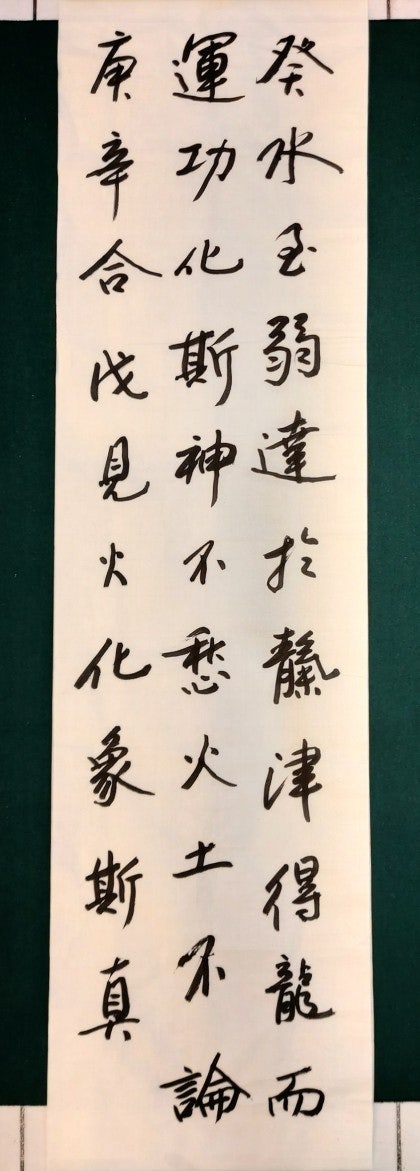 癸水至弱達於靝津得龍而
運功化斯神不愁火土不論
庚辛合戊見火化象斯真